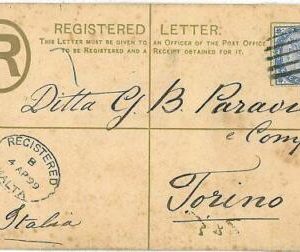 REGISTERED LETTER.
THIS LETTER MUST BE GIVEN TO AN OFFICER OF THE POST OFFICE
TO BE REGISTERED AND A RECEIPT OBTAINED FOR IT.
R
Ditta G. B. Paravi
e Comp
REGISTERED
B
4 AP 99
MALTA
Torino
Italia